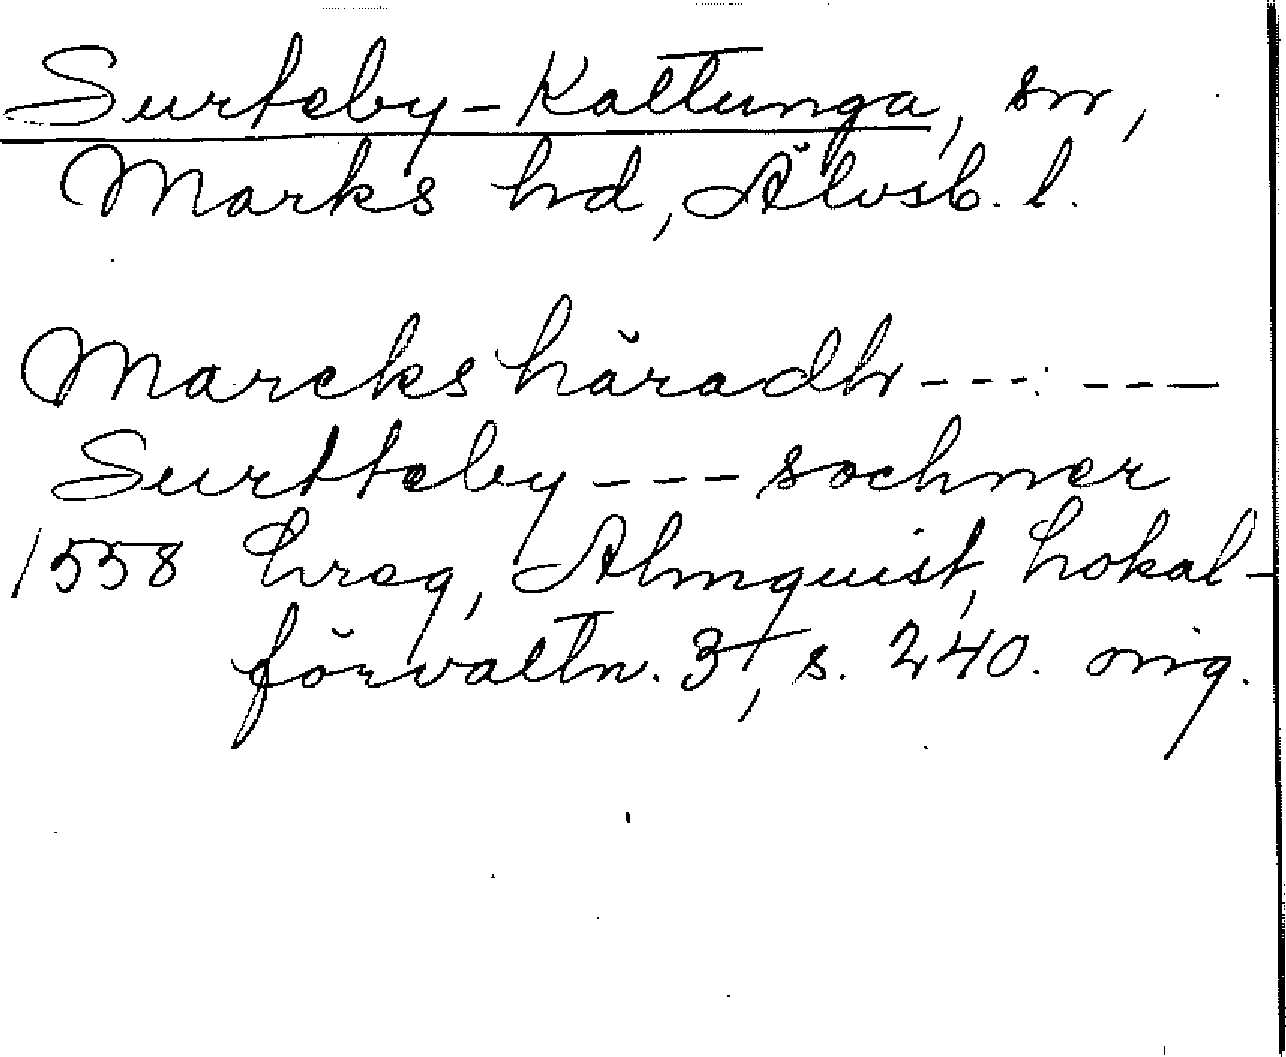 Surteby-Kattunga, sn,
Marks hd, Älvsb. l.
Marcks häradh --- ---
Surtteby --- sochner
1558 hreg, Almquist, Lokal-
förvaltn. 3, s. 240. orig.